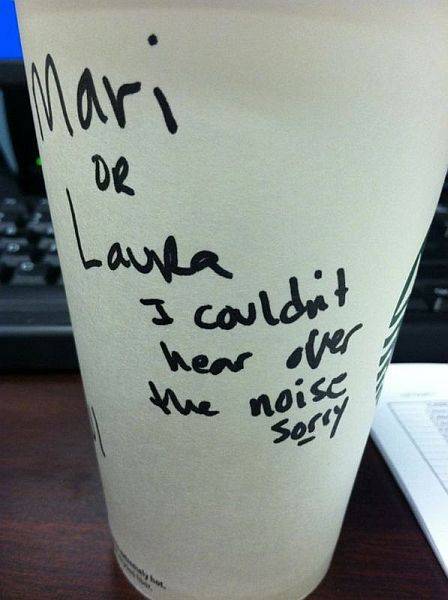 Mari
OR
Laura
I couldn't
hear over
the noise
sorry